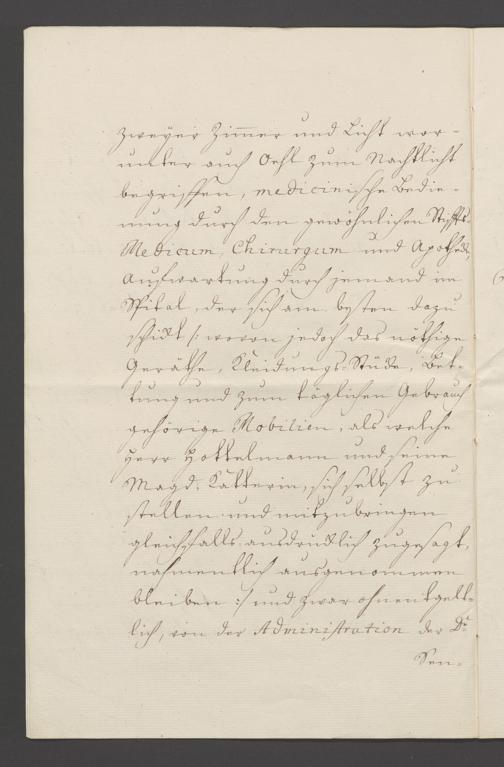 zweyer Zimmer und Licht wor-
unter auch Oehl zum Nachtlicht
begriffen, medicinische Bedie-
nung durch den gewöhnlichen Stiffts
Medicum, Chirurgum und Apothek,
Aufwartung durch jemand im
Spital, der sich am besten dazu
schickt /: wovon jedoch das nöthige
Geräthe, Kleidungs-Stücke, Bet-
tung und zum täglichen Gebrauch
gehörige Mobilien, als welche
Herr Hottelmann und seine
Magd, Kätterin, sich selbst zu
stellen und mitzubringen
gleichfalls ausdrücklich zugesagt,
nahmentlich ausgenommen
bleiben :/ und zwar ohnentgelt-
lich, von der Administration der Dr.
Sen-